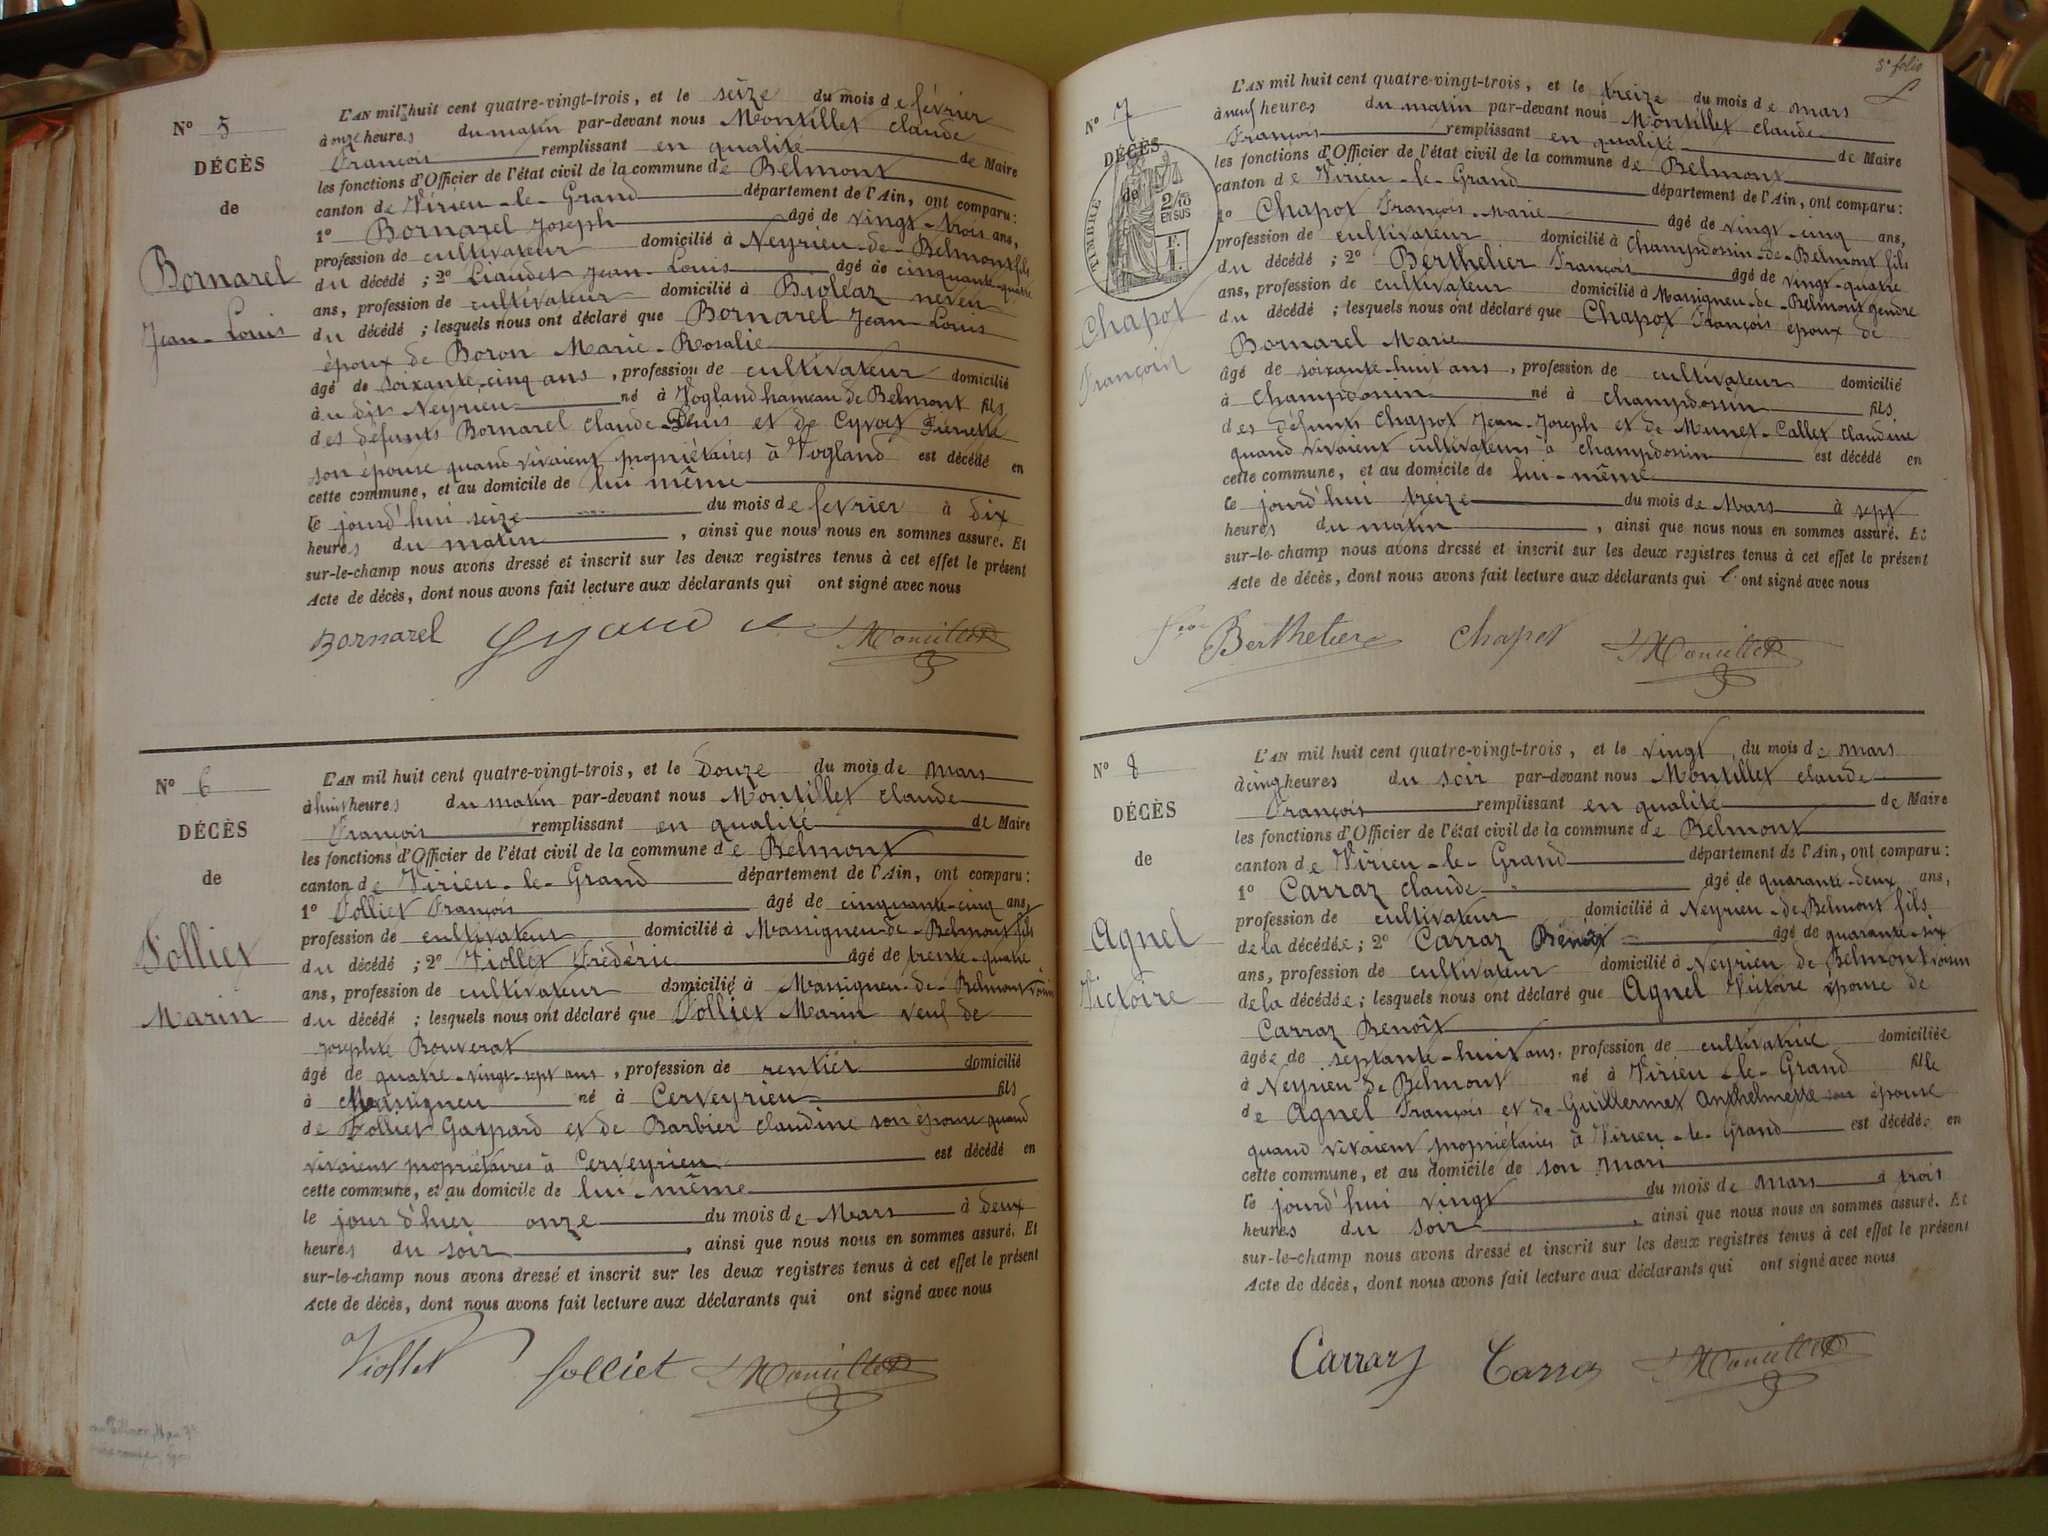 N° 5
DÉCÈS
de
Bornarel
Jean-Louis
L'AN mil huit cent quatre-vingt-trois, et le seize du mois de février
à onze heures du matin par-devant nous Montillet claude
François remplissant en qualité de Maire
les fonctions d'Officier de l'état civil de la commune de Belmont
canton de Virieu-le-Grand département de l'Ain, ont comparu :
1° Bornarel Joseph âgé de vingt-trois ans,
profession de cultivateur domicilié à Neyrieu-de-Belmont fils
du décédé ; 2° Liaudet Jean-Louis âgé de cinquante-quatre
ans, profession de cultivateur domicilié à Bioléaz neveu
du décédé ; lesquels nous ont déclaré que Bornarel Jean Louis
époux de Boron Marie-Rosalie
âgé de soixante-cinq ans, profession de cultivateur domicilié
à u dit Neyrieu né à Vogland hameau de Belmont fils
des défunts Bornarel claude Denis et de Cyvoct Pierrette
son épouse quand vivaient propriétaires à Vogland est décédé en
cette commune, et au domicile de lui même
le jourd'hui seize du mois de février à dix
heures du matin, ainsi que nous nous en sommes assuré. Et
sur-le-champ nous avons dressé et inscrit sur les deux registres tenus à cet effet le présent
Acte de décès, dont nous avons fait lecture aux déclarants qui ont signé avec nous
Bornarel Montillet
N° 6
DÉCÈS
de
Folliet
Marin
L'AN mil huit cent quatre-vingt-trois, et le douze du mois de mars
à huit heures du matin par-devant nous Montillet claude
François remplissant en qualité de Maire
les fonctions d'Officier de l'état civil de la commune de Belmont
canton de Virieu-le-Grand département de l'Ain, ont comparu :
1° Folliet François âgé de cinquante-cinq ans,
profession de cultivateur domicilié à Massigneu-de-Belmont fils
du décédé ; 2° Viollet Frédéric âgé de trente-quatre
ans, profession de cultivateur domicilié à Massigneu-de-Belmont voisin
du décédé ; lesquels nous ont déclaré que Folliet Marin veuf de
Josephte Bouverat
âgé de quatre-vingt-sept ans, profession de rentier domicilié
à Massigneu né à Cerveyrieu fils
de Folliet Gaspard et de Barbier claudine son épouse quand
vivaient propriétaires à Cerveyrieu est décédé en
cette commune, et au domicile de lui-même
le jour d'hier onze du mois de Mars à deux
heures du soir, ainsi que nous nous en sommes assuré. Et
sur-le-champ nous avons dressé et inscrit sur les deux registres tenus à cet effet le présent
Acte de décès, dont nous avons fait lecture aux déclarants qui ont signé avec nous
Viollet folliet Montillet
3e folio
N° 7
DÉCÈS
de
TIMBRE
2/10
EN SUS
Chapot
François
L'AN mil huit cent quatre-vingt-trois, et le treize du mois de mars
à neuf heures du matin par-devant nous Montillet claude
François remplissant en qualité de Maire
les fonctions d'Officier de l'état civil de la commune de Belmont
canton de Virieu-le-Grand département de l'Ain, ont comparu :
1° Chapot François-Marie âgé de vingt-cinq ans,
profession de cultivateur domicilié à champdossin-de-Belmont fils
du décédé ; 2° Berthelier François âgé de vingt-quatre
ans, profession de cultivateur domicilié à Massigneu-de-Belmont gendre
du décédé ; lesquels nous ont déclaré que Chapot François époux de
Bornarel Marie
âgé de soixante-huit ans, profession de cultivateur domicilié
à champdossin né à champdossin fils
des défunts chapot Jean-Joseph et de Munet-Callet claudine
quand vivaient cultivateurs à champdossin est décédé en
cette commune, et au domicile de lui-même
le jourd'hui treize du mois de Mars à sept
heures du matin, ainsi que nous nous en sommes assuré. Et
sur-le-champ nous avons dressé et inscrit sur les deux registres tenus à cet effet le présent
Acte de décès, dont nous avons fait lecture aux déclarants qui ont signé avec nous
Berthelier chapot Montillet
N° 8
DÉCÈS
de
Agnel
Victoire
L'AN mil huit cent quatre-vingt-trois, et le vingt du mois de mars
à cinq heures du soir par-devant nous Montillet claude
François remplissant en qualité de Maire
les fonctions d'Officier de l'état civil de la commune de Belmont
canton de Virieu-le-Grand département de l'Ain, ont comparu :
1° Carraz claude âgé de quarante-deux ans,
profession de cultivateur domicilié à Neyrieu-de-Belmont fils
de la décédée ; 2° Carraz Benoît âgé de quarante-six
ans, profession de cultivateur domicilié à Neyrieu de Belmont voisin
de la décédée ; lesquels nous ont déclaré que Agnel Victoire épouse de
Carraz Benoît
âgée de septante-huit ans, profession de cultivatrice domiciliée
à Neyrieu de Belmont né à Virieu-le-Grand fille
de Agnel François et de Guillermet anthelmette son épouse
quand vivaient propriétaires à Virieu-le-Grand est décédée en
cette commune, et au domicile de son mari
le jourd'hui vingt du mois de mars à trois
heures du soir, ainsi que nous nous en sommes assuré. Et
sur-le-champ nous avons dressé et inscrit sur les deux registres tenus à cet effet le présent
Acte de décès, dont nous avons fait lecture aux déclarants qui ont signé avec nous
Carraz Carraz Montillet